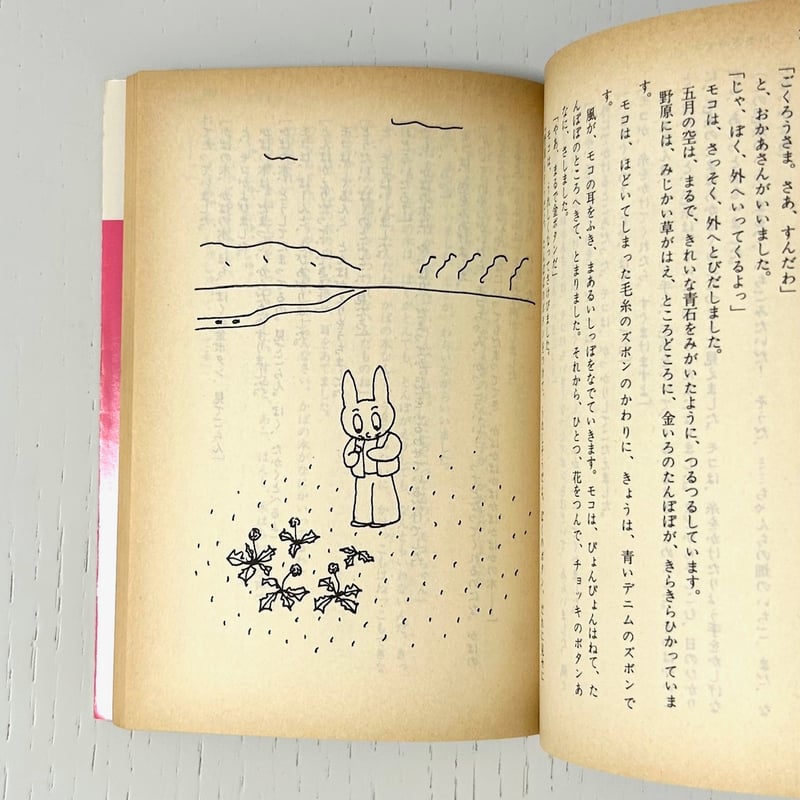 「ごくろうさま。さあ、すんだわ」
と、おかあさんがいいました。
「じゃ、ぼく、外へいってくるよっ」
モコは、さっそく、外へとびだしました。
五月の空は、まるで、きれいな青石をみがいたように、つるつるしています。
野原には、みじかい草がはえ、ところどころに、金いろのたんぽぽが、きらきらひかっていま
す。
モコは、ほどいてしまった毛糸のズボンのかわりに、きょうは、青いデニムのズボンで
す。
風が、モコの耳をふき、まあるいしっぽをなでていきます。モコは、ぴょんぴょんはねて、た
んぽぽのところへきて、とまりました。それから、ひとつ、花をつんで、チョッキのボタンあ
なに、さしました。
「やあ、まるで金ボタンだ」